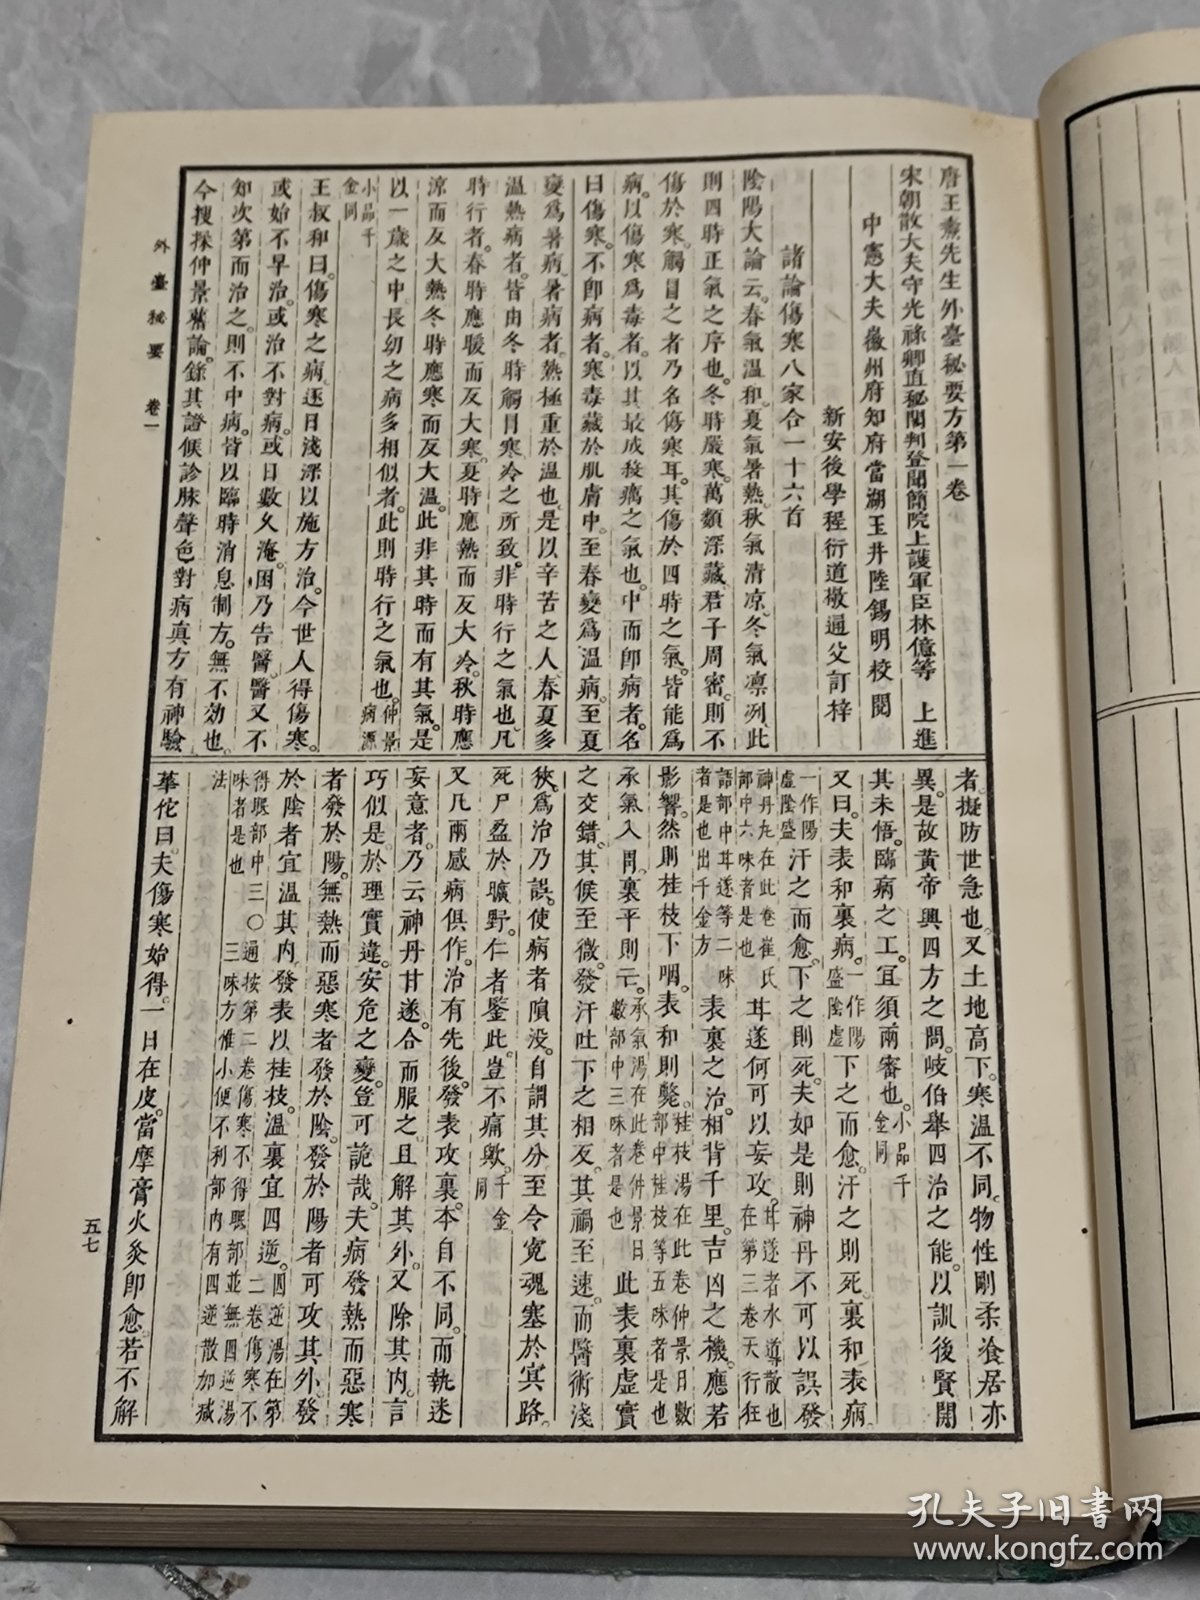 唐王燾先生外臺秘要方第一卷
宋朝散大夫守光祿卿直秘閣判登聞簡院上護軍臣林億等　上進
中憲大夫徽州府知府當湖王井陸錫明校閱
新安後學程衍道敬通父訂梓
諸論傷寒八家合一十六首
陰陽大論云。春氣溫和。夏氣暑熱。秋氣清凉。冬氣凛冽。此
則四時正氣之序也。冬時嚴寒。萬類深藏。君子周密。則不
傷於寒。觸冒之者。乃名傷寒耳。其傷於四時之氣。皆能爲
病。以傷寒爲毒者。以其最成殺癘之氣也。中而即病者。名
曰傷寒。不即病者。寒毒藏於肌膚中。至春變爲溫病。至夏
變爲暑病。暑病者。熱極重於溫也。是以辛苦之人。春夏多
溫熱病者。皆由冬時觸冒寒冷之所致。非時行之氣也。凡
時行者。春時應暖而反大寒。夏時應熱而反大冷。秋時應
涼而反大熱。冬時應寒而反大溫。此非其時而有其氣。是
以一歲之中。長幼之病多相似者。此則時行之氣也。仲景病源
小品千金同
王叔和曰。傷寒之病。逐日淺深。以施方治。今世人得傷寒。
或始不早治。或治不對病。或日數久淹。困乃告醫。醫又不
知次第而治之。則不中病。皆以臨時消息制方。無不効也。
今搜採仲景舊論。錄其證候診脉聲色對病真方有神驗
者。擬防世急也。又土地高下。寒溫不同。物性剛柔。飡居亦
異。是故黃帝興四方之問。岐伯舉四治之能。以訓後賢。開
其未悟。臨病之工。宜須兩審也。小品千金同
又曰。夫表和裏病。一作陽盛陰虛下之而愈。汗之則死。裏和表病。
一作陽虛陰盛汗之而愈。下之則死。夫如是則神丹不可以誤發。
神丹丸在此卷崔氏部中六味者是也甘遂何可以妄攻。甘遂者水導散也在第三卷天行狂
語部中甘遂等二味者是也出千金方表裏之治。相背千里。吉凶之機。應若
影響。然則桂枝下咽。表和則斃。桂枝湯在此卷仲景日數部中桂枝等五味者是也
承氣入胃。裏平則亡。承氣湯在此卷仲景日數部中三味者是也此表裏虛實
之交錯。其候至微。發汗吐下之相反。其禍至速。而醫術淺
狹。爲治乃誤。使病者隕沒。自謂其分。至令寃魂塞於冥路。
死尸盈於曠野。仁者鑒此。豈不痛歟。千金同
又凡兩感病俱作。治有先後。發表攻裏。本自不同。而執迷
妄意者。乃云神丹甘遂。合而服之。且解其外。又除其內。言
巧似是。於理實違。安危之變。豈可詭哉。夫病發熱而惡寒
者。發於陽。無熱而惡寒者。發於陰。發於陽者。可攻其外。發
於陰者。宜溫其內。發表以桂枝。溫裏宜四逆。四逆湯在第二卷傷寒不
得眠部中三味者是也〇通按第二卷傷寒不得眠部並無四逆湯三味方惟小便不利部內有四逆散加減
法
華佗曰。夫傷寒始得。一日在皮。當摩膏火灸即愈。若不解
外臺秘要　卷一
五七
孔夫子旧书网
www.kongfz.com